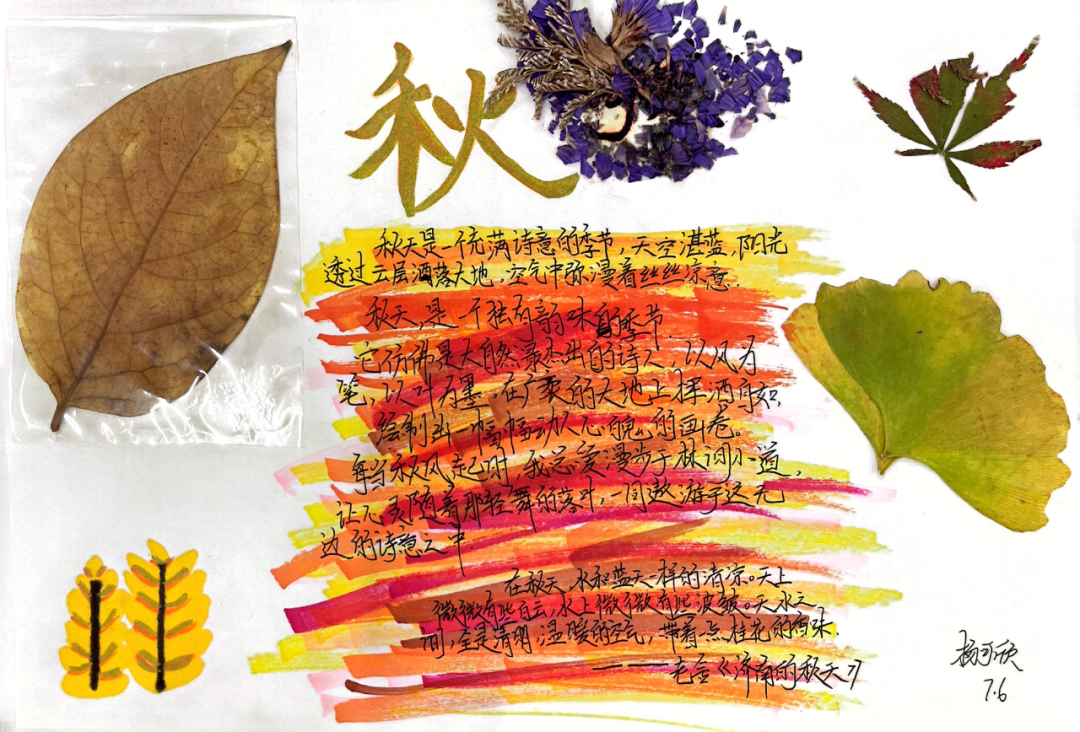 秋
秋天是一个充满诗意的季节，天空湛蓝，阳光
透过云层洒落大地，空气中弥漫着丝丝凉意．
秋天，是一个独有韵味的季节
它仿佛是大自然最杰出的诗人，以风为
笔，以叶为墨，在广袤的天地上挥洒自如，
绘制出一幅幅动人心魄的画卷。
每当秋风起时，我总爱漫步于林间小道，
让心灵随着那轻舞的落叶，一同遨游于这无
边的诗意之中．
在秋天，水和蓝天一样的清凉。天上
微微有些白云，水上微微有些波皱。天水之
间，全是清明，温暖的空气，带着一点桂花的香味．
———老舍《济南的秋天》
杨可欣
7.6